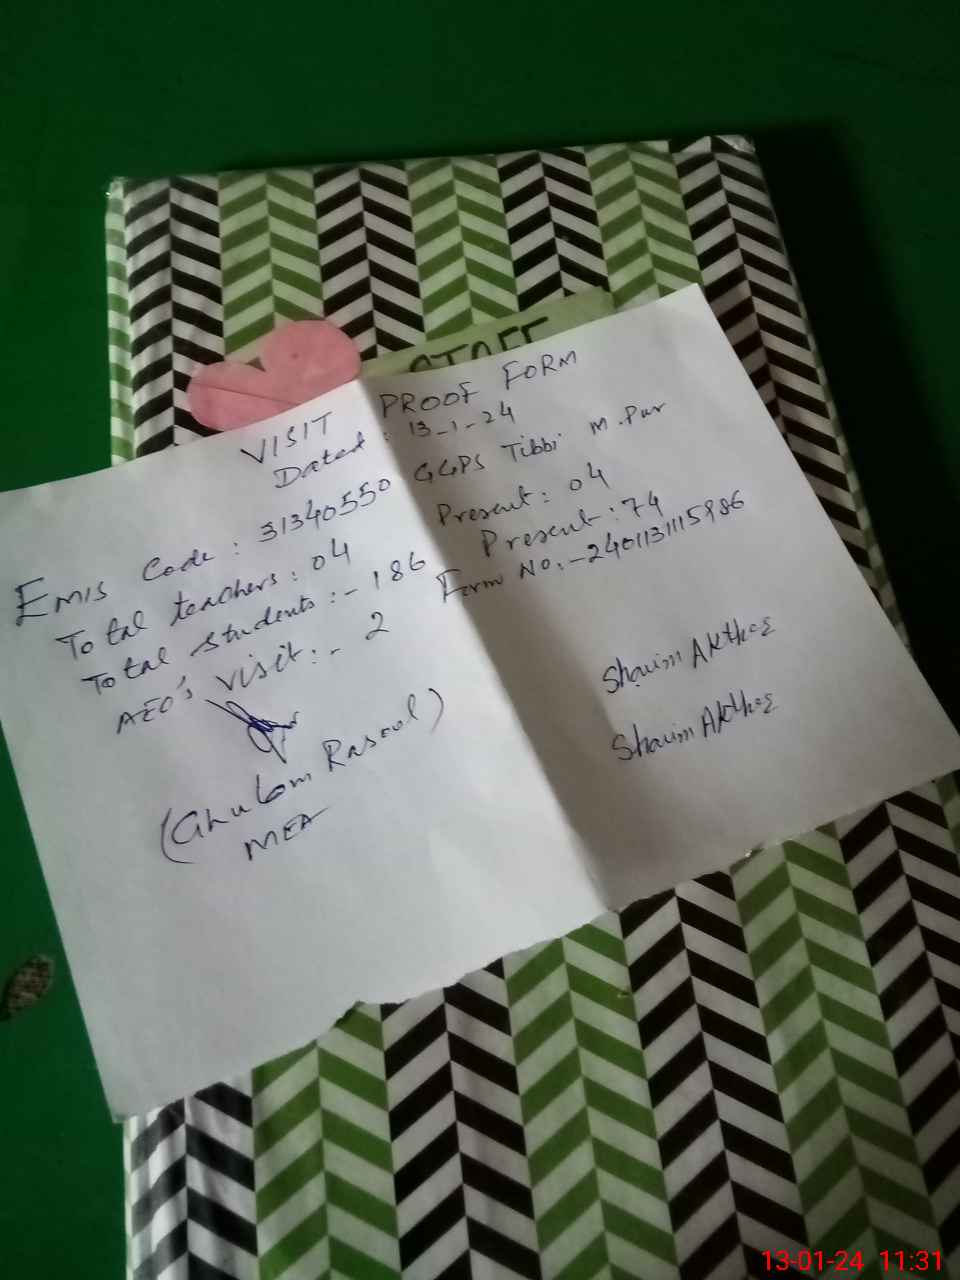 STAFF
VISIT PROOF FORM
Dated : 13-1-24
Emis Code : 31340550 GGPS Tibbi M.Pur
Total teachers : 04 Present : 04
Total students :- 186 Present : 74
AEO's visit :- 2 Form No:- 2401131115986
(Ghulam Rasool)
MEA
Shamim Akhter
Shamim Akhter
13-01-24 11:31